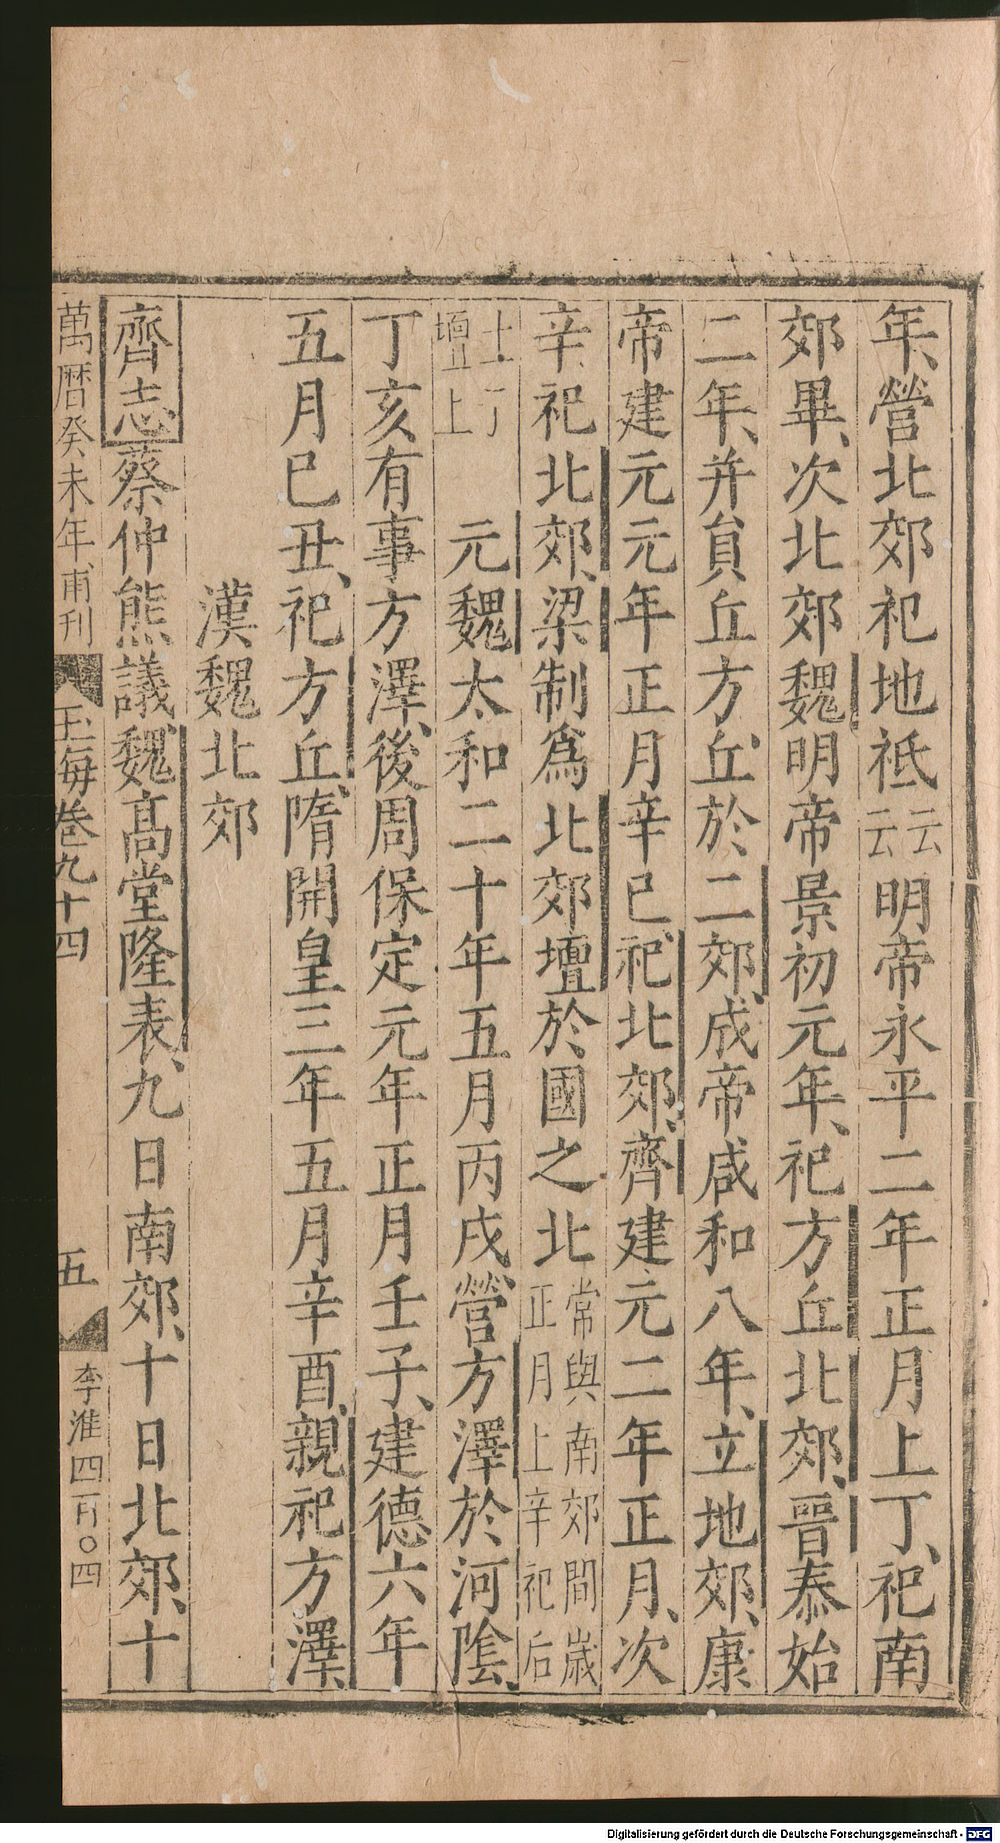 年營北郊祀地祇云云明帝永平二年正月上丁祀南
郊畢次北郊魏明帝景初元年祀方丘北郊晉泰始
二年并貟丘方丘於二郊成帝咸和八年立地郊康
帝建元元年正月辛巳祀北郊齊建元二年正月次
辛祀北郊梁制爲北郊壇於國之北常與南郊間歲正月上辛祀后
土丁壇上元魏太和二十年五月丙戌營方澤於河陰
丁亥有事方澤後周保定元年正月壬子建德六年
五月巳丑祀方丘隋開皇三年五月辛酉親祀方澤
漢魏北郊
齊志蔡仲熊議魏高堂隆表九日南郊十日北郊十
萬曆癸未年甫刊
玉海卷九十四
五
李淮四百〇四
Digitalisierung gefördert durch die Deutsche Forschungsgemeinschaft - DFG